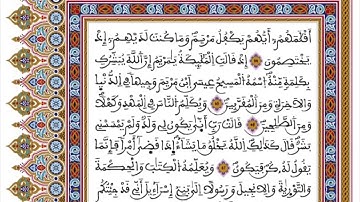 أَقْلَٰمَهُمْ أَيُّهُمْ يَكْفُلُ مَرْيَمَ وَمَا كُنتَ لَدَيْهِمْ إِذْ
يَخْتَصِمُونَ ۝ إِذْ قَالَتِ الْمَلَٰٓئِكَةُ يَٰمَرْيَمُ إِنَّ اللَّهَ يُبَشِّرُكِ
بِكَلِمَةٍ مِّنْهُ اسْمُهُ الْمَسِيحُ عِيسَى ابْنُ مَرْيَمَ وَجِيهًا فِي الدُّنْيَا
وَالْآخِرَةِ وَمِنَ الْمُقَرَّبِينَ ۝ وَيُكَلِّمُ النَّاسَ فِي الْمَهْدِ وَكَهْلًا
وَمِنَ الصَّٰلِحِينَ ۝ قَالَتْ رَبِّ أَنَّىٰ يَكُونُ لِي وَلَدٌ وَلَمْ يَمْسَسْنِي
بَشَرٌ قَالَ كَذَٰلِكِ اللَّهُ يَخْلُقُ مَا يَشَآءُ إِذَا قَضَىٰٓ أَمْرًا فَإِنَّمَا
يَقُولُ لَهُ كُن فَيَكُونُ ۝ وَيُعَلِّمُهُ الْكِتَٰبَ وَالْحِكْمَةَ
وَالتَّوْرَىٰةَ وَالْإِنجِيلَ ۝ وَرَسُولًا إِلَىٰ بَنِيٓ إِسْرَٰٓءِيلَ أَنِّي قَدْ جِئْتُكُم